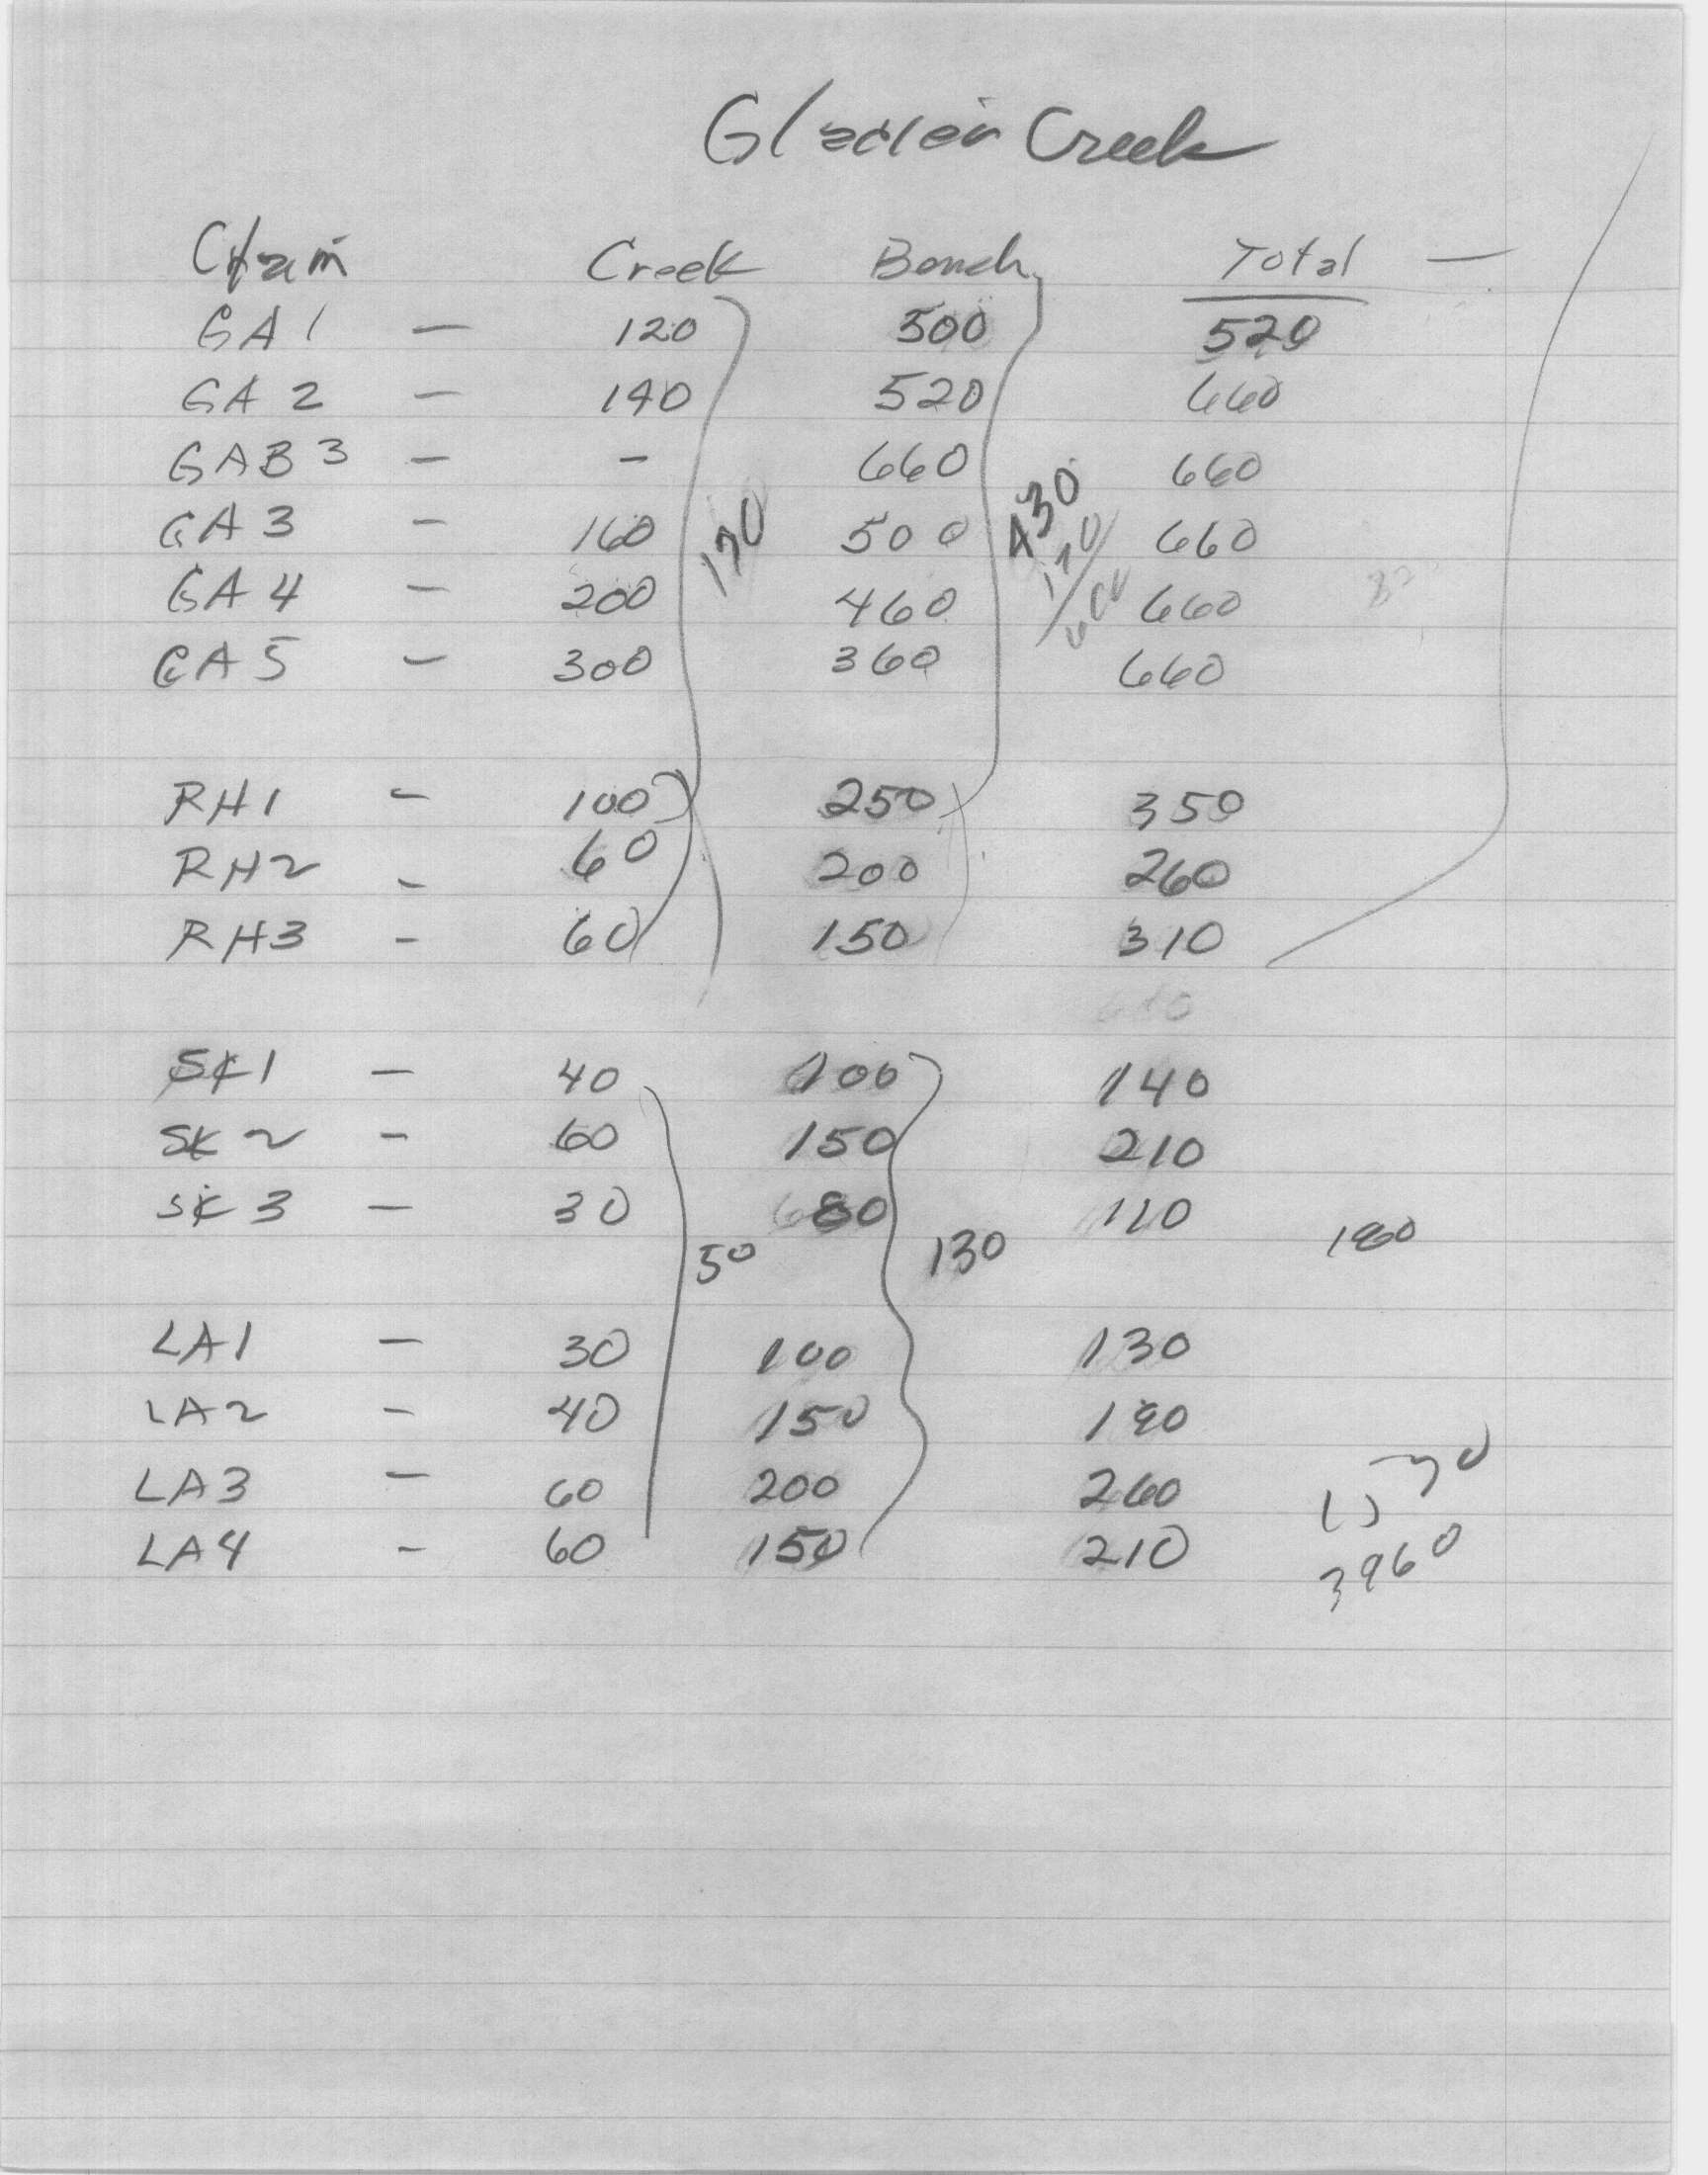 Glacier Creek
Claim Creek Bench Total —
GA 1 — 120 500 520
GA 2 — 140 520 660
GAB 3 — - 660 660
GA 3 — 160 500 660
170 430
170
600
GA 4 — 200 460 660
GA 5 — 300 360 660
RH1 - 100 250 350
RH2 - 60 200 260
RH3 - 60 150 310
SK1 — 40 100 140
SK2 - 60 150 210
SK3 — 30 80 110
50 130 180
LA1 — 30 100 130
LA2 - 40 150 190
LA3 — 60 200 260
LA4 - 60 150 210
3960